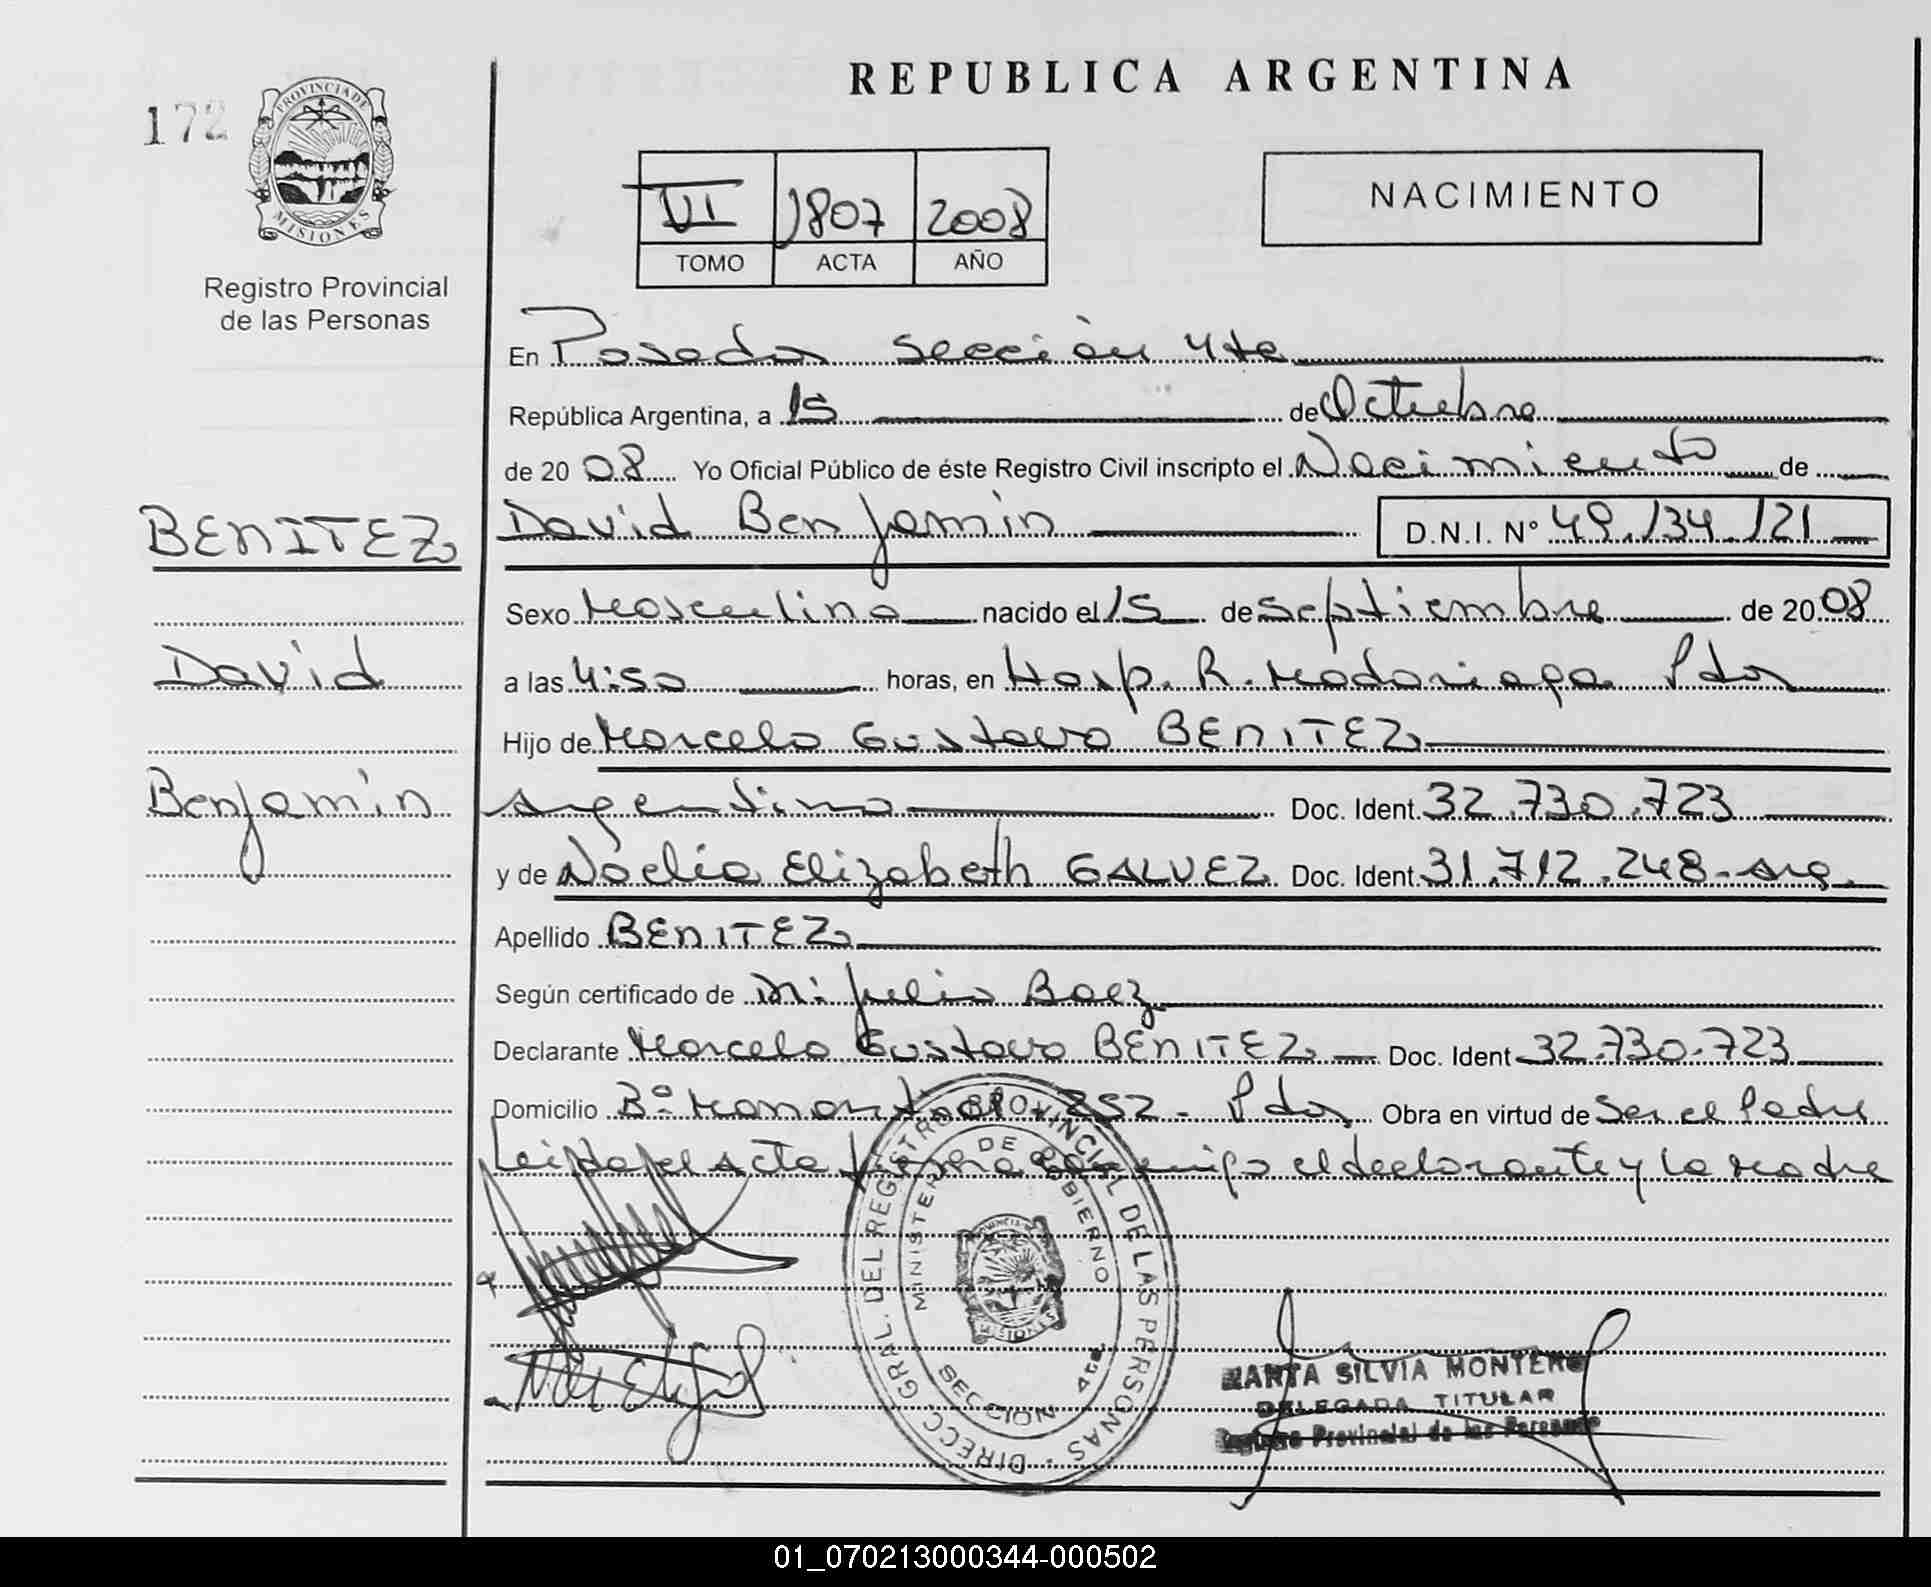 REPUBLICA ARGENTINA
172
PROVINCIA DE
MISIONES
Registro Provincial
de las Personas
VI 1807 2008
TOMO ACTA AÑO
NACIMIENTO
En Posadas Sección 4ta
República Argentina, a 15 de Octubre
de 20 08 Yo Oficial Público de éste Registro Civil inscripto el Nacimiento de
BENITEZ
David
Benjamin
David Benjamin D.N.I. Nº 49.134.121
Sexo Masculino nacido el 15 de Septiembre de 20 08
a las 4:50 horas, en Hosp. R. Madariaga Pdas
Hijo de Marcelo Gustavo BENITEZ
Argentino Doc. Ident. 32.730.723
y de Noelia Elizabeth GALVEZ Doc. Ident. 31.712.248 - Arg.
Apellido BENITEZ
Según certificado de Julio Baez
Declarante Marcelo Gustavo BENITEZ Doc. Ident 32.730.723
Domicilio Bº Manantial 252 - Pdas Obra en virtud de Ser el Padre
Leida el Acta firma conmigo el declarante y la madre
DIRECC. GRAL. DEL REGISTRO PROVINCIAL DE LAS PERSONAS
MINISTERIO DE GOBIERNO
PROVINCIA DE
MISIONES
SECCION 4ta.
MARTA SILVIA MONTERO
DELEGADA TITULAR
Registro Provincial de las Personas
01_070213000344-000502